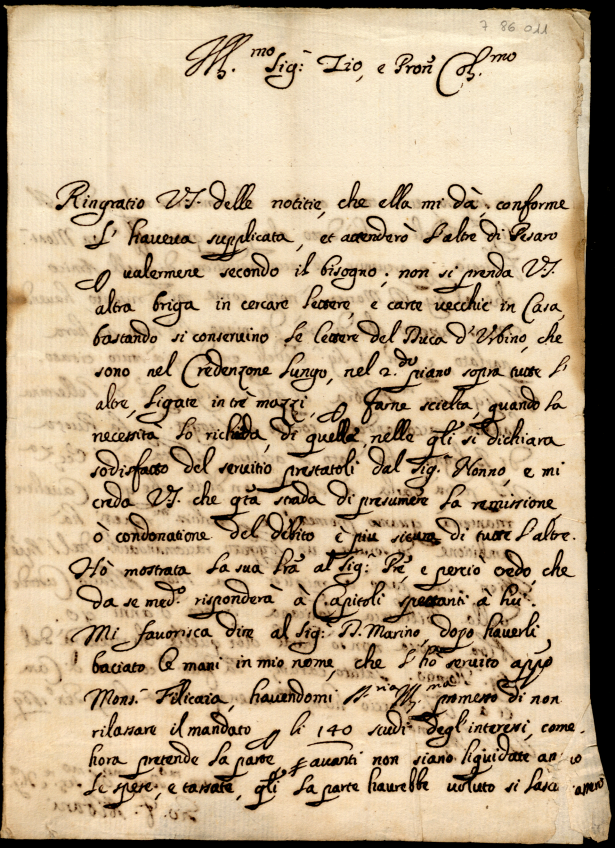 7 86 011
Ill.mo Sig.r Zio, e Pron Col.mo
Ringratio V.S. delle notitie, che ella mi dà, conforme
l'haveva supplicata, et attenderò l'altre di Pesaro
p valermene secondo il bisogno; non si prenda V.S.
altra briga in cercare lettere, e carte vecchie in Casa,
bastando si conservino le lettere del Duca d'Urbino, che
sono nel Credenzone lungo, nel 2.do piano sopra tutte l'
altre, ligate in trè mazzi, p farne scielta, quando la
necessità lo richieda, di quelle nelle qli si dichiara
sodisfatto del servitio prestatoli dal Sig.r Nonno, e mi
creda V.S. che qta strada di presumere la remissione
ò condonatione del debito è più sicura di tutte l'altre.
Hò mostrata la sua lra al Sig.r Pre, e perciò credo, che
da se med.o risponderà à Capitoli spettanti à lui.
Mi favorisca dire al Sig.r D. Marino, dopo haverli
baciato le mani in mio nome, che l'ho servito appo
Mons.r Filicaia, havendomi S.ria Ill.ma promesso di non
rilassare il mandato p li 140 scudi degl'interessi, come
hora pretende la parte, se avanti non siano liquidate an
le spese, e tassate, qli la parte havrebbe voluto si